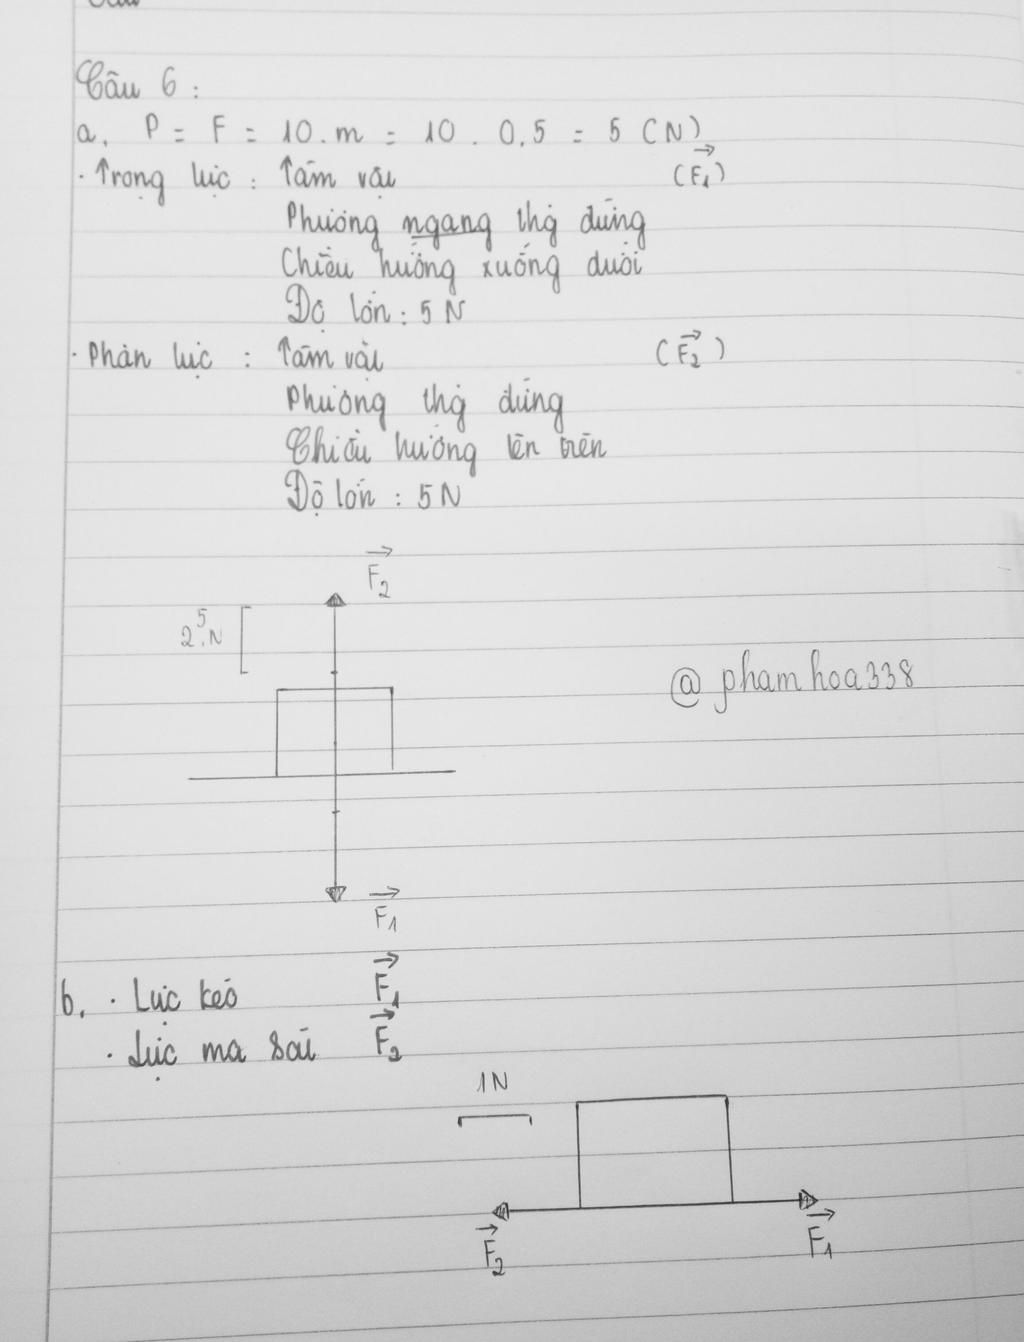 Câu 6 :
a, P = F = 10.m = 10 . 0,5 = 5 (N)
· Trọng lực : Tâm vật (F₁)
Phương ngang thg̉ đứng
Chiều hướng xuống dưới
Độ lớn : 5 N
· Phản lực : Tâm vật (F₂)
Phương thg̉ đứng
Chiều hướng lên trên
Độ lớn : 5N
F₂
2,5 N
@phamhoa338
F₁
b, · Lực kéo F₁
· Lực ma sát F₂
1N
F₂ F₁